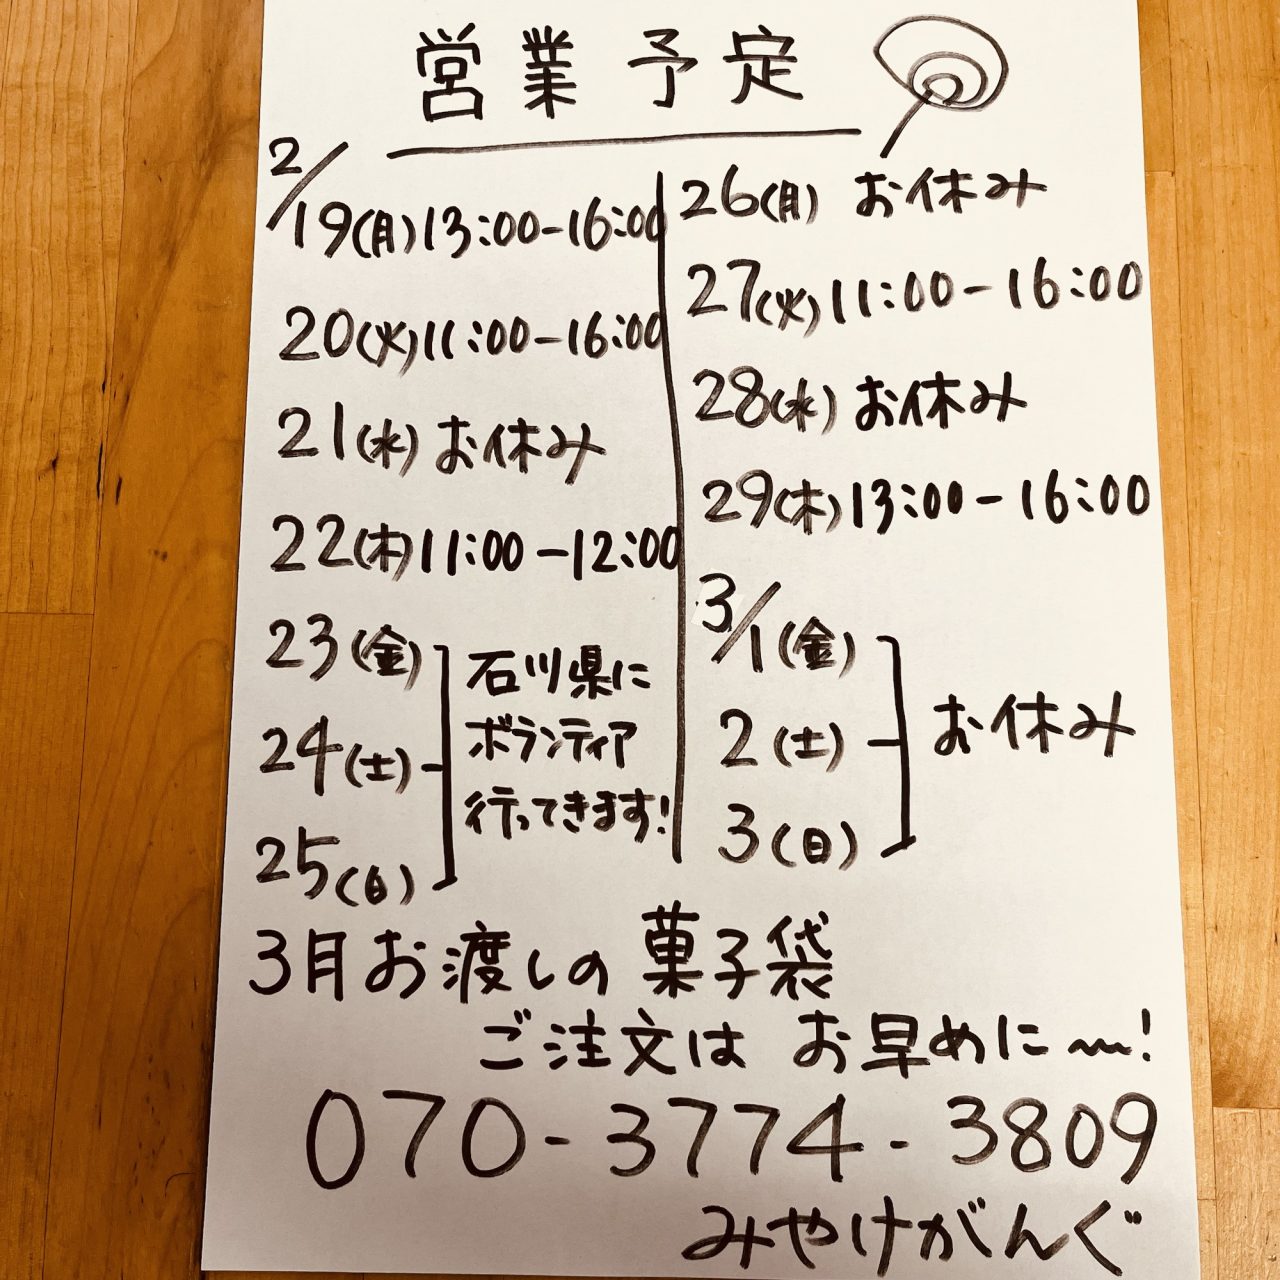 営業予定
2/19(月)13:00-16:00
20(火)11:00-16:00
21(水)お休み
22(木)11:00-12:00
23(金)
24(土)
25(日)
石川県に
ボランティア
行ってきます!
26(月) お休み
27(火)11:00-16:00
28(水)お休み
29(木)13:00-16:00
3/1(金)
2(土)
3(日)
お休み
3月お渡しの菓子袋
ご注文は お早めに〜!
070-3774-3809
みやけがんぐ